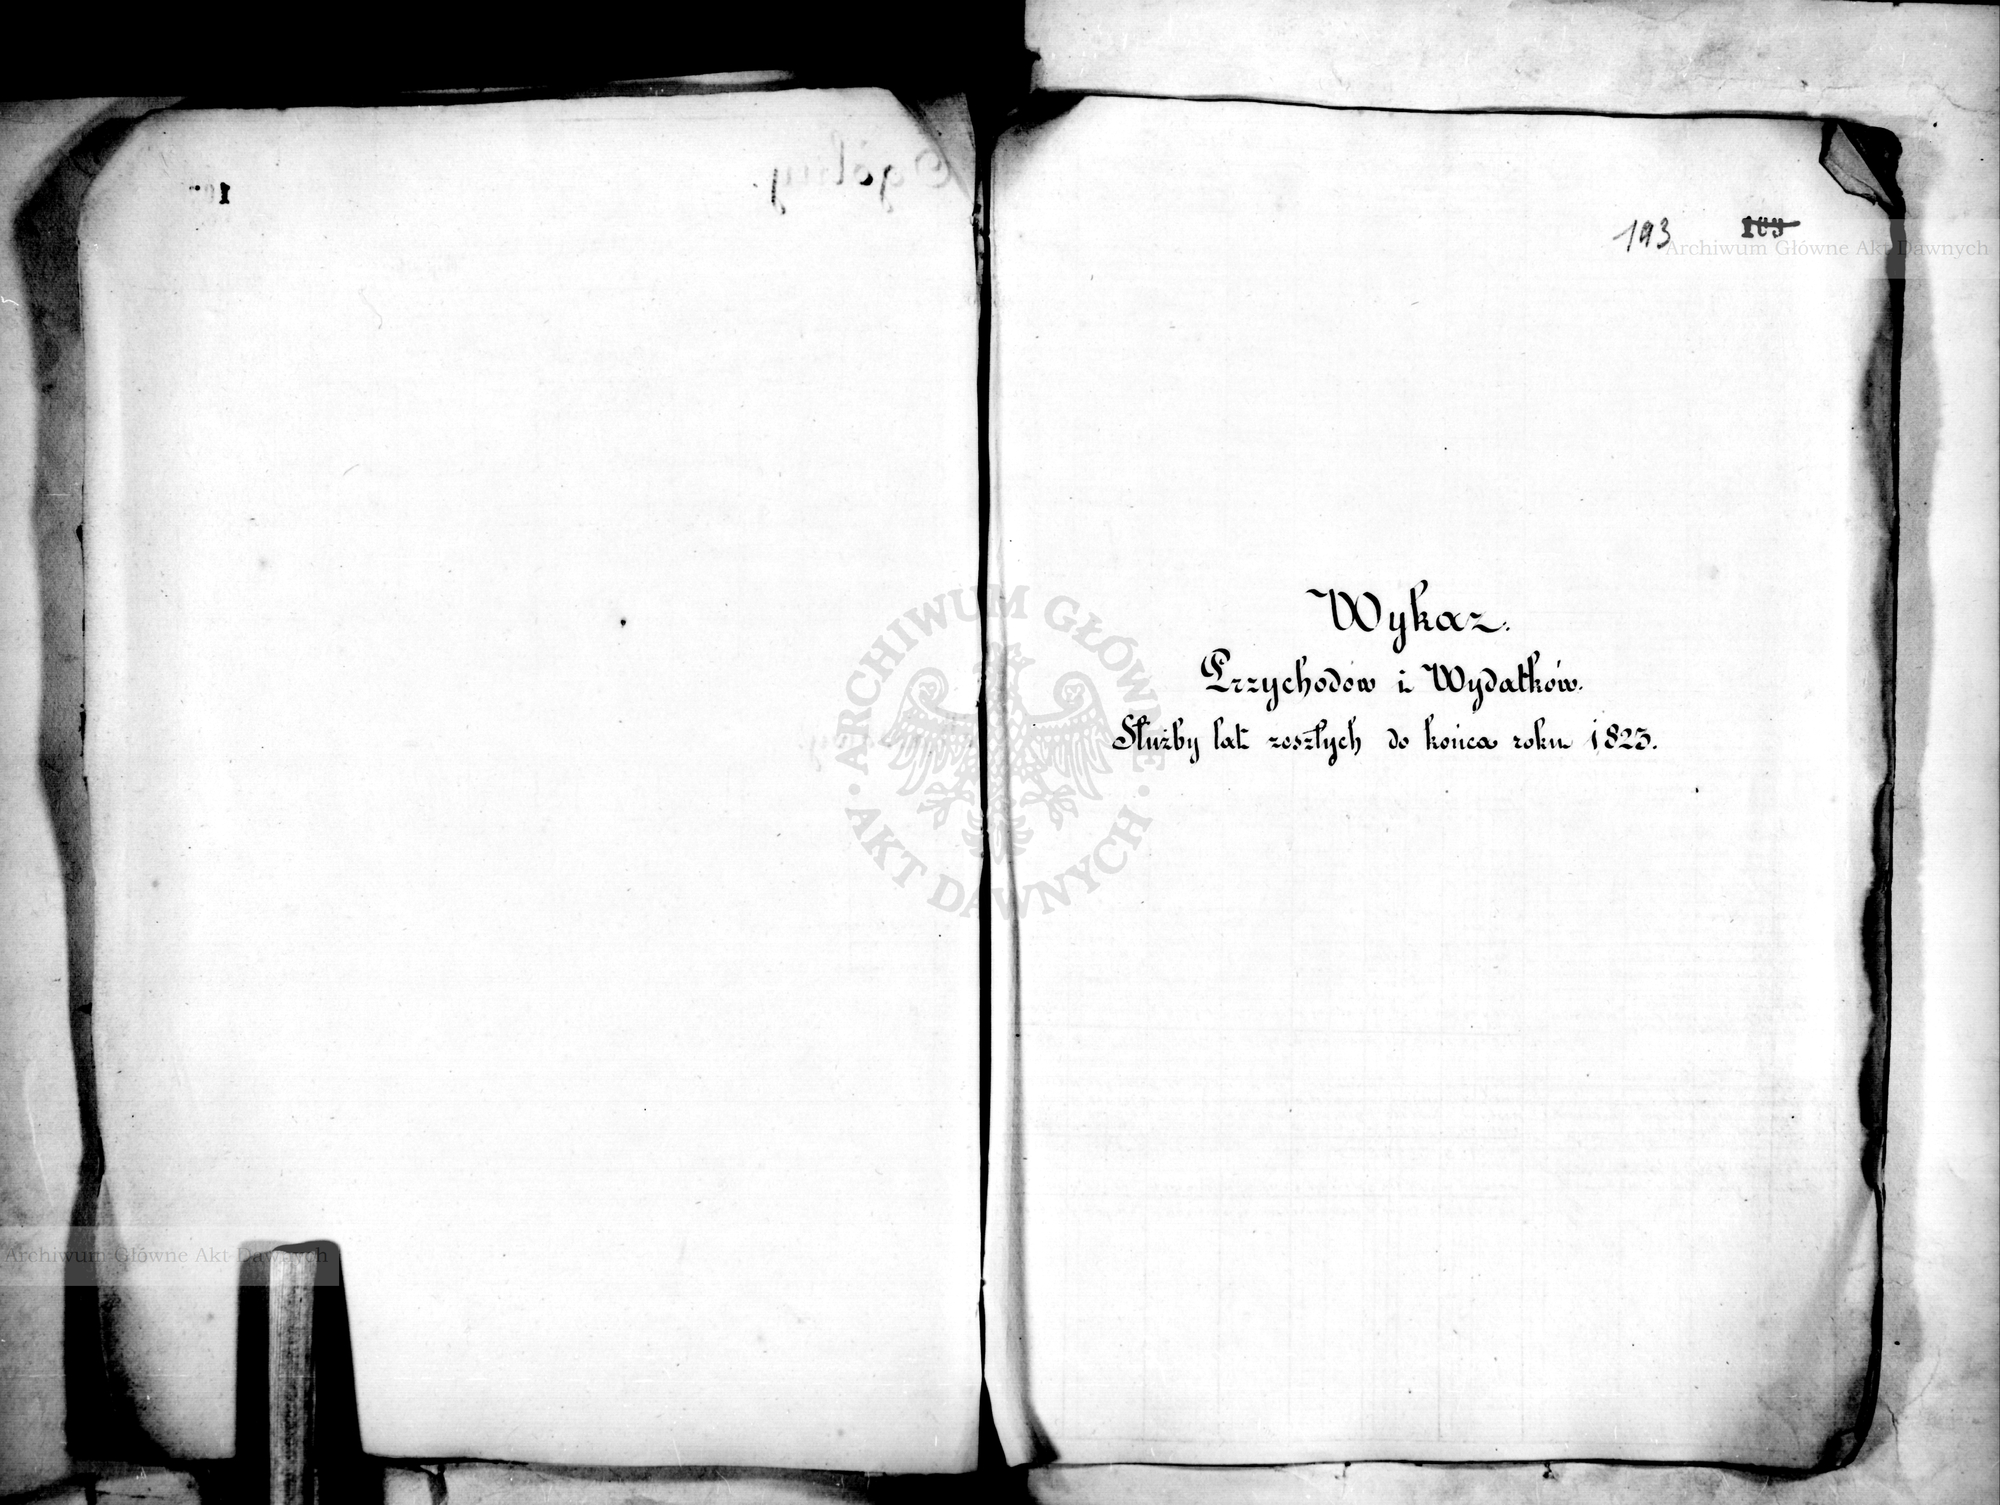 193 103
Wykaz.
Przychodów i Wydatków.
Służby lat zeszłych do końca roku 1823.
Archiwum Główne Akt Dawnych
ARCHIWUM GŁÓWNE
· AKT DAWNYCH ·
Archiwum Główne Akt Dawnych